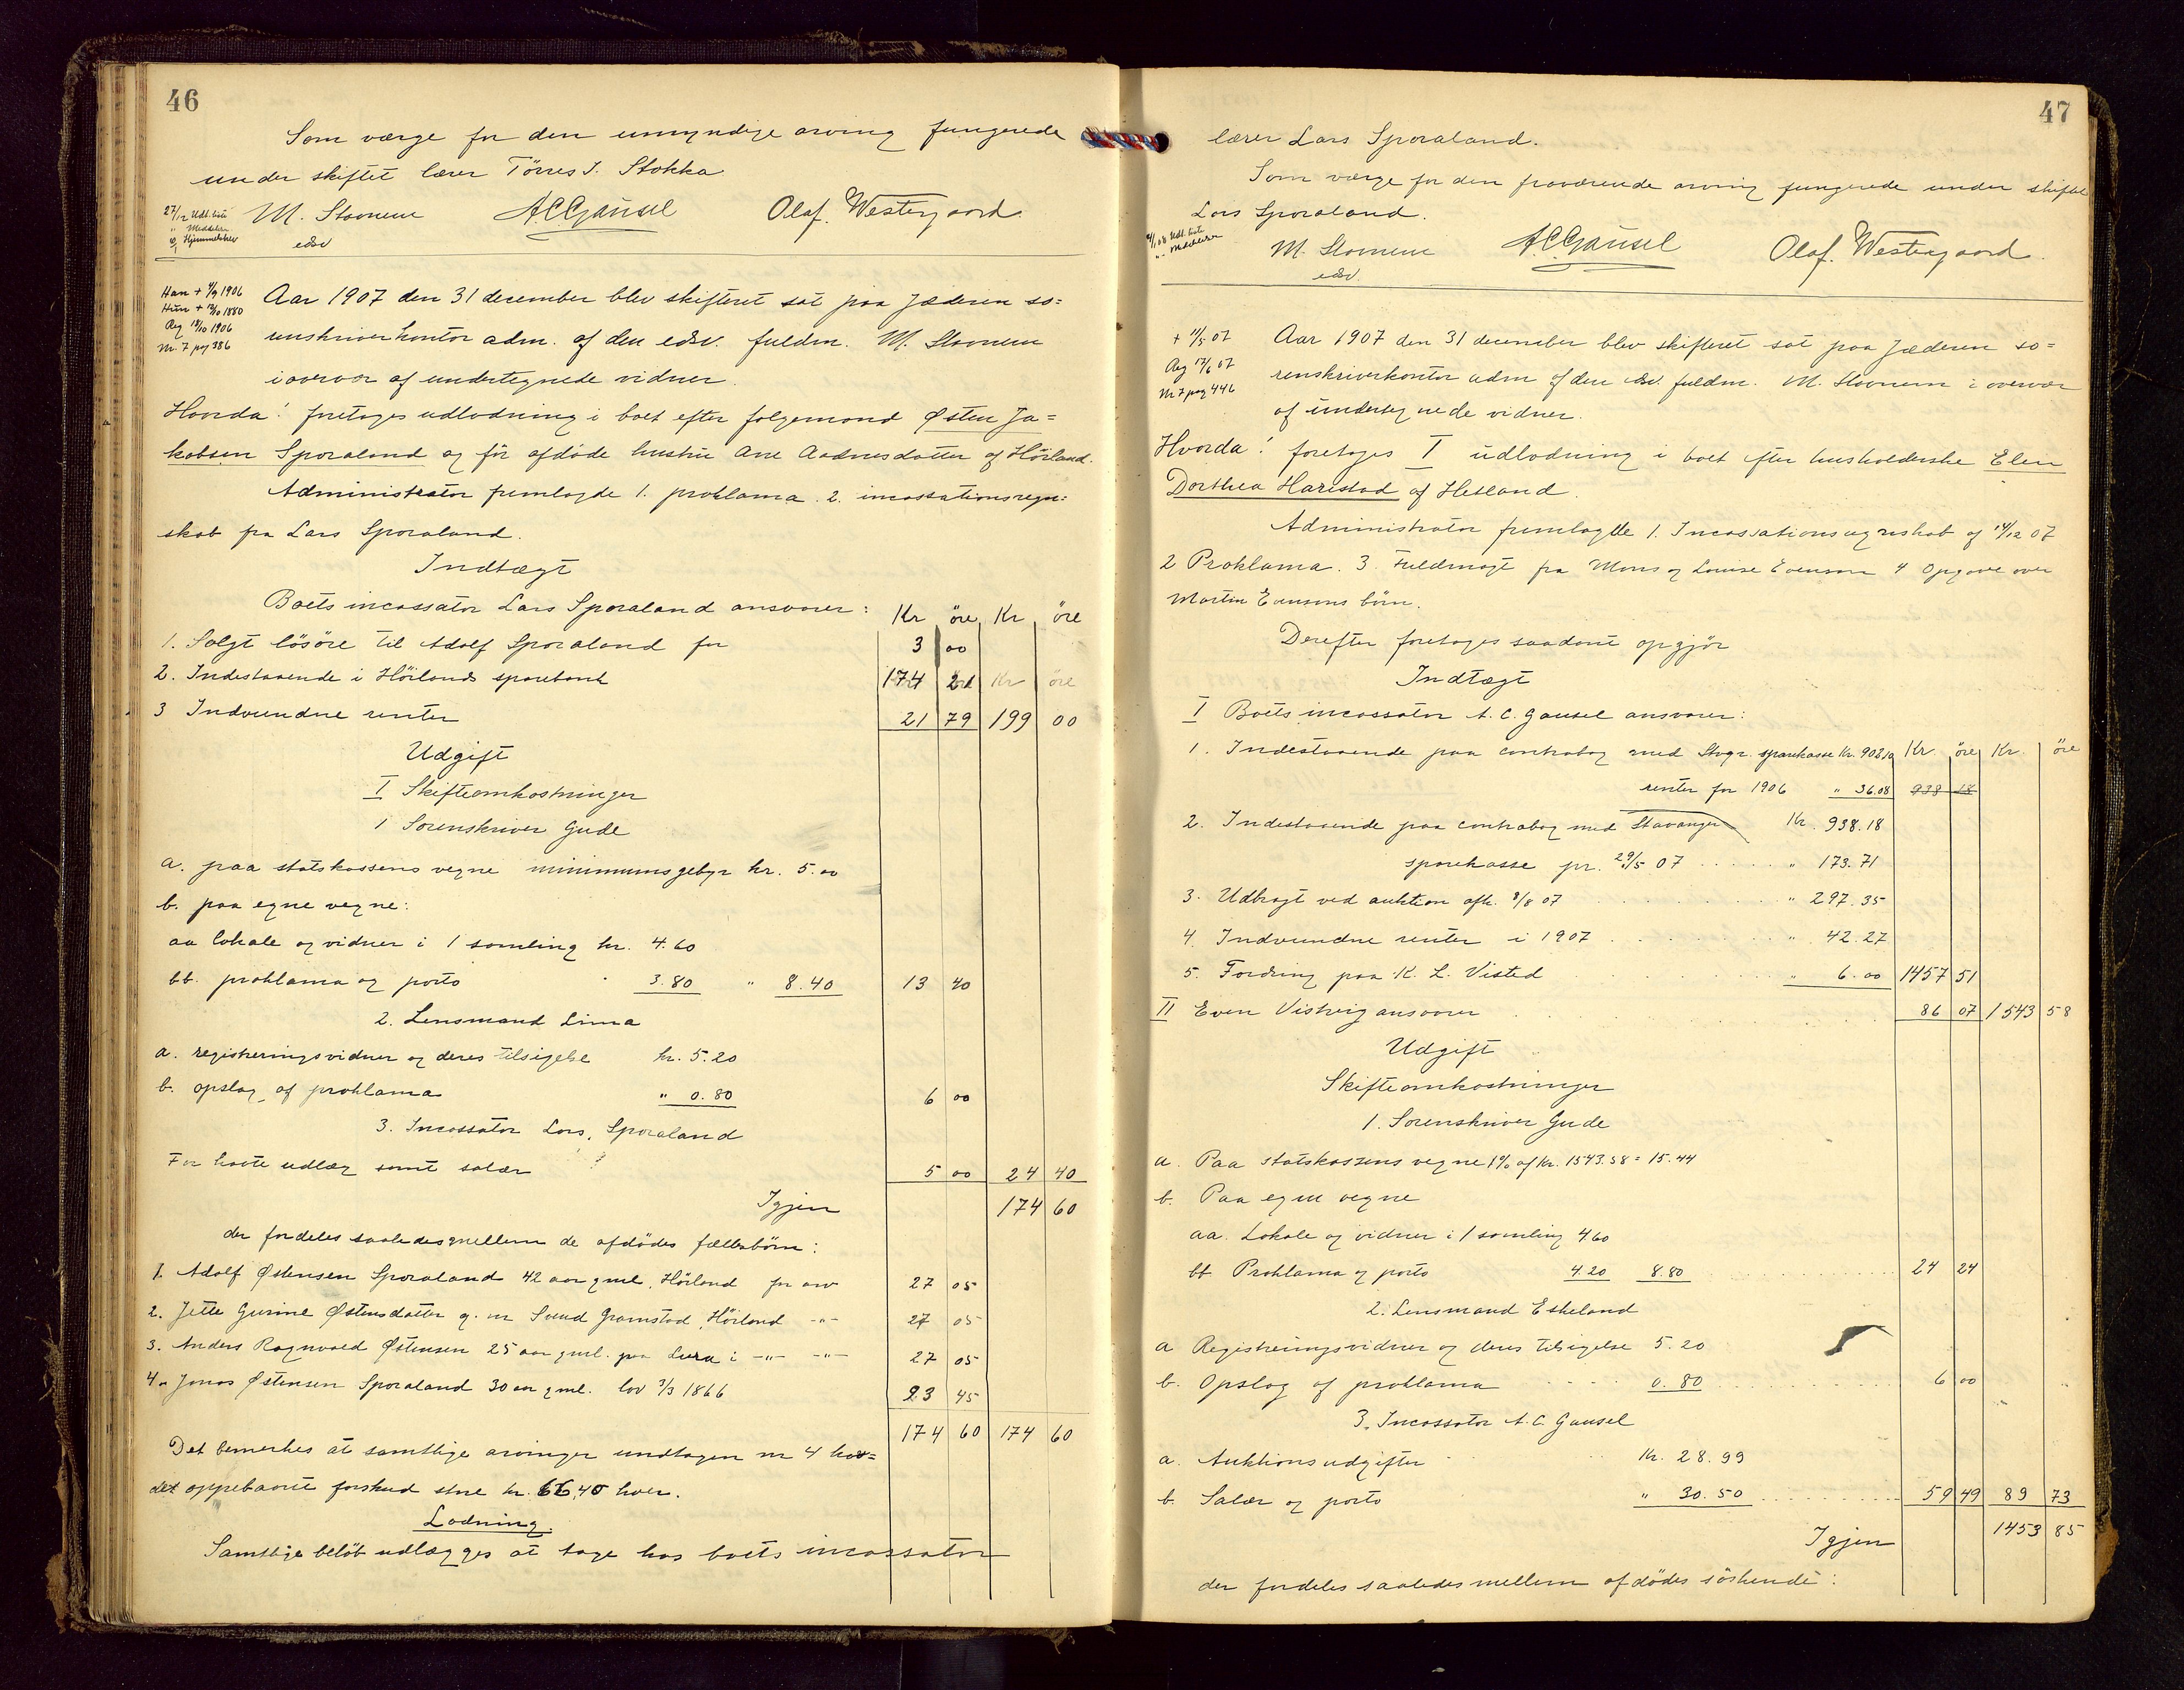 46
Som værge for den umyndige arving fungerede
under skiftet lærer Törres S. Stokka
27/12 Udt. liste
" Meddelse
Hjemmelsbrev
M. Stornem A C Gausel Olaf. Westergaard
edsv
Han + 4/9 1906
Hun + 13/10 1880
Reg 18/10 1906
Nr. 7 pag 386
Aar 1907 den 31 december blev skifteret sat paa Jæderen so=
renskriverkontor adm. af den edsv. fuldm. M. Stornem
i overvær af undertegnede vidner.
Hvorda! foretoges udlodning i boet efter følgemand Østen Ja=
kobsen Sporaland og før afdøde hustru Ane Aadnesdatter af Höiland.
Administrator fremlagde 1. proklama. 2. incassationsregn=
skab fra Lars Sporaland.
Indtægt
Boets incassator Lars Sporaland ansvarer: Kr öre Kr öre
1. Solgt lösöre til Adolf Sporaland for 3 00
2. Indestaaende i Höilands sparebank 174 21 Kr öre
3 Indvundne renter 21 79 199 00
Udgift
I Skifteomkostninger
1 Sorenskriver Gude
a. paa statskassens vegne minimumsgebyr kr. 5.00
b. paa egne vegne:
aa Lokale og vidner i 1 samling kr. 4.60
bb. proklama og porto 3.80 " 8.40 13 40
2. Lensmand Lima
a. registreringsvidner og deres tilsigelse kr. 5.20
b. opslag af proklama " 0.80 6 00
3. Incassator Lars Sporaland
For havte udlæg samt salær 5 00 24 40
Igjen 174 60
der fordeles saaledes mellem de afdødes fællesbörn:
1. Adolf Østensen Sporaland 42 aar gml. Höiland for arv 27 05
2. Jette Gurine Østensdatter g. m Svend Gramstad, Höiland -"- 27 05
3. Anders Ragnvald Østensen 25 aar gml. paa Lura i -"- -"- 27 05
4. Jonas Østensen Sporaland 30 aar gml. lov 3/3 1866 93 45
174 60 174 60
Det bemerkes at samtlige arvinger undtagen nr 4 hav=
det oppebaaret forskud stort kr. 66,40 hver.
Lodning.
Samtlige beløb udlægges at tage hos boets incassator
47
lærer Lars Sporaland.
Som værge for den fraværende arving fungerede under skiftet
Lars Sporaland.
Udt. liste
" Meddelelser
M. Stornem A. C. Gausel Olaf. Westergaard.
edsv.
+ 11/5 07
Reg 17/6 07
Nr 7 pag 446
Aar 1907 den 31 december blev skifteret sat paa Jæderen so=
renskriverkontor adm af den edsv. fuldm. M. Stornem i overvær
af undertegnede vidner.
Hvorda! foretoges I udlodning i boet efter husholderske Elen
Dorthea Harestad af Hetland.
Administrator fremlagde 1. Incassationsregnskab af 14/12 07
2 Proklama. 3. Fuldmagt fra Mons og Louise Evensen 4 Opgave over
Martin Evensens börn.
Derefter foretoges saadant opgjör
Indtægt
I Boets incassator A. C. Gausel ansvarer:
1. Indestaaende paa contrabog med Stvgr. sparekasse Kr. 902.10 Kr öre Kr. öre
renter for 1906 " 36.08 938 18
2. Indestaaende paa contrabog med Stavanger Kr. 938.18
sparekasse pr. 29/5 07 " 173.71
3. Udbragt ved auktion afh. 8/8 07 " 297.35
4. Indvundne renter i 1907 " 42.27
5. Fordring paa K. L. Visted " 6.00 1457 51
II Even Vistvig ansvarer 86 07 1543 58
Udgift
Skifteomkostninger
1. Sorenskriver Gude
a. Paa statskassens vegne 1% af Kr. 1543.58 = 15.44
b. Paa egne vegne
aa. Lokale og vidner i 1 samling 4 60
bb Proklama og porto 4.20 8.80 24 24
2. Lensmand Eskeland
a Registreringsvidner og deres tilsigelse 5.20
b. Opslag af proklama 0.80 6 00
3. Incassator A. C. Gausel
a. Auktionsudgifter Kr. 28.99
b. Salær og porto " 30.50 59 49 89 73
Igjen 1453 85
der fordeles saaledes mellem afdödes söskende: